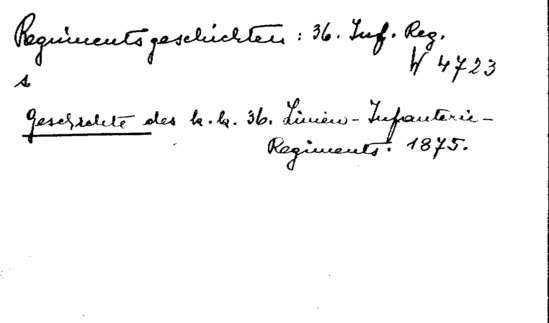 Regimentsgeschichten: 36. Inf. Reg.
W 4723
s
Geschichte des k. k. 36. Linien-Infanterie-
Regiments. 1875.